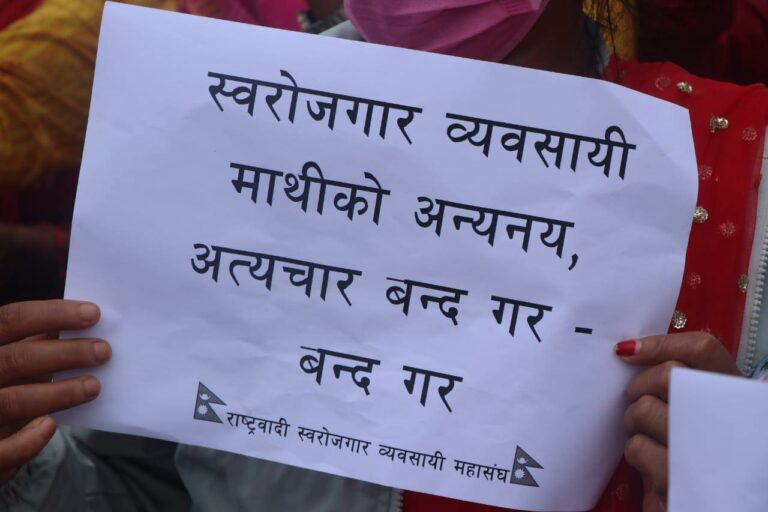 स्वरोजगार व्यवसायी
माथीको अन्यनय,
अत्यचार बन्द गर -
बन्द गर
राष्ट्रवादी स्वरोजगार व्यवसायी महासंघ